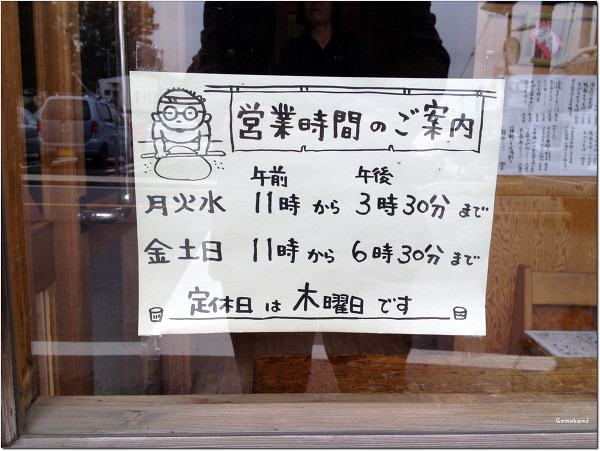 営業時間のご案内
午前 午後
月火水 11時から 3時30分まで
金土日 11時から 6時30分まで
定休日は木曜日です
Gomuband